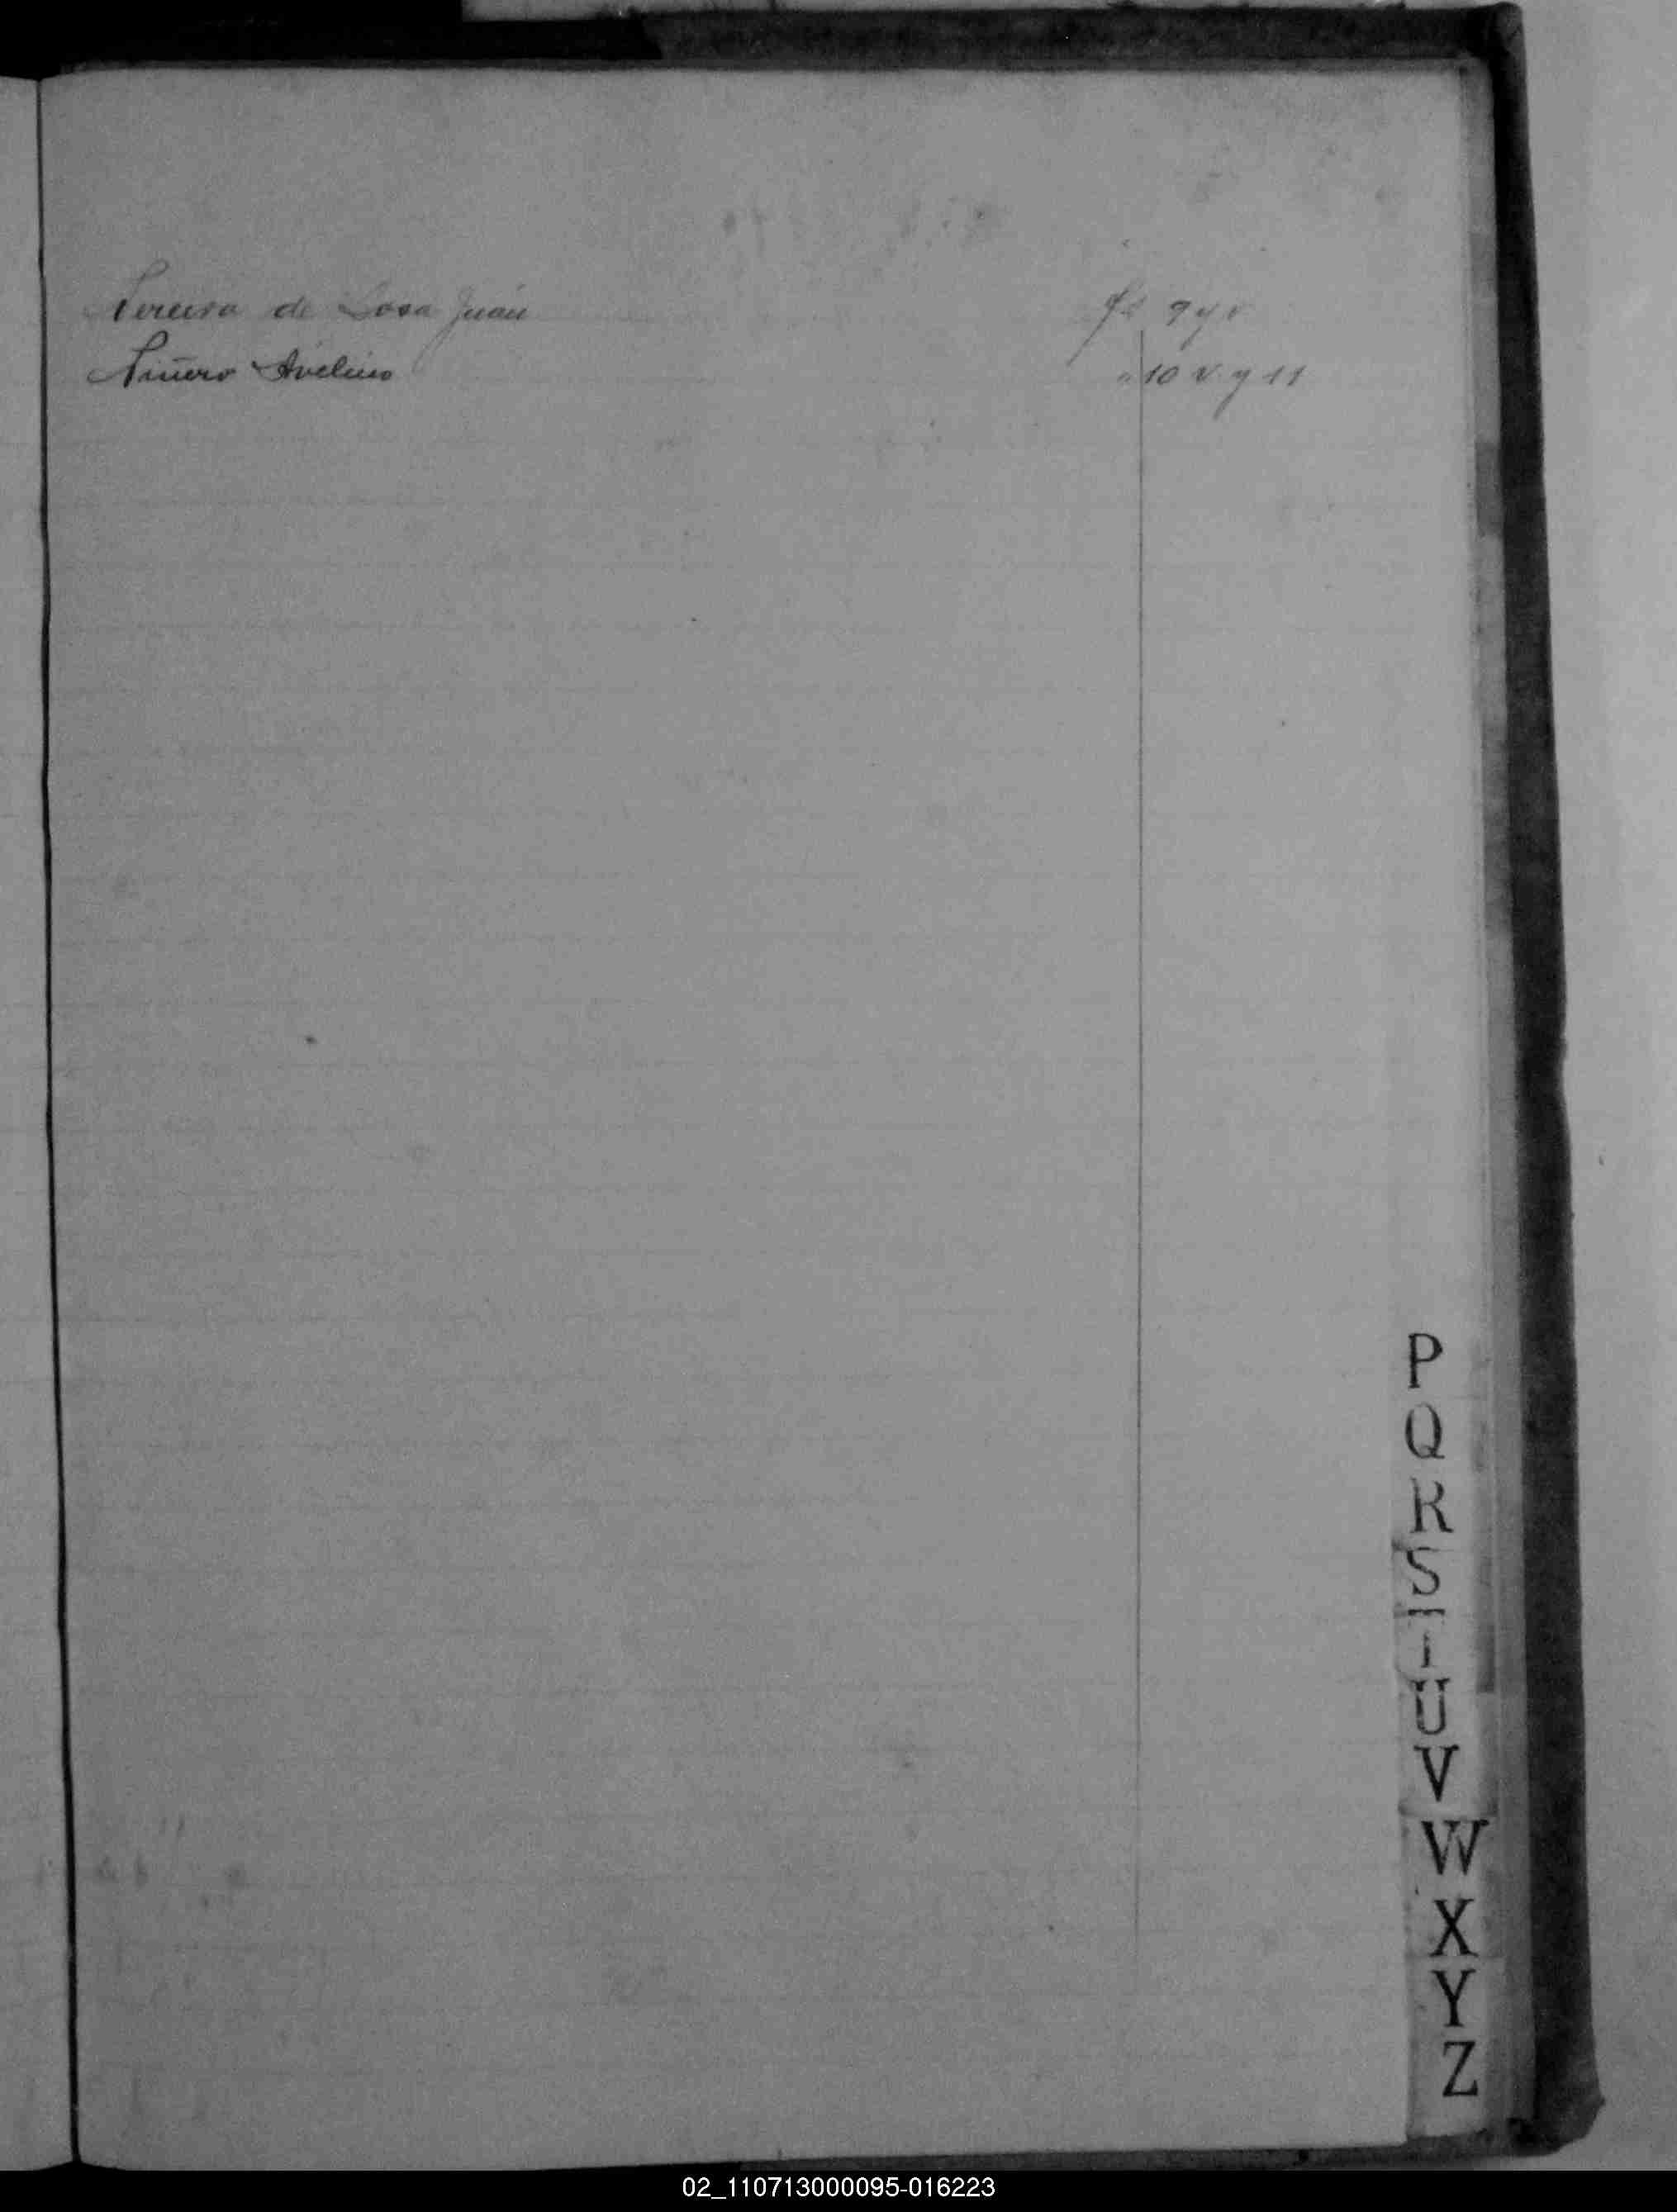 Pereira de Sosa Juan fs 9 y v
Piñero Avelino " 10 v. y 11
P
Q
R
S
T
U
V
W
X
Y
Z
02_110713000095-016223